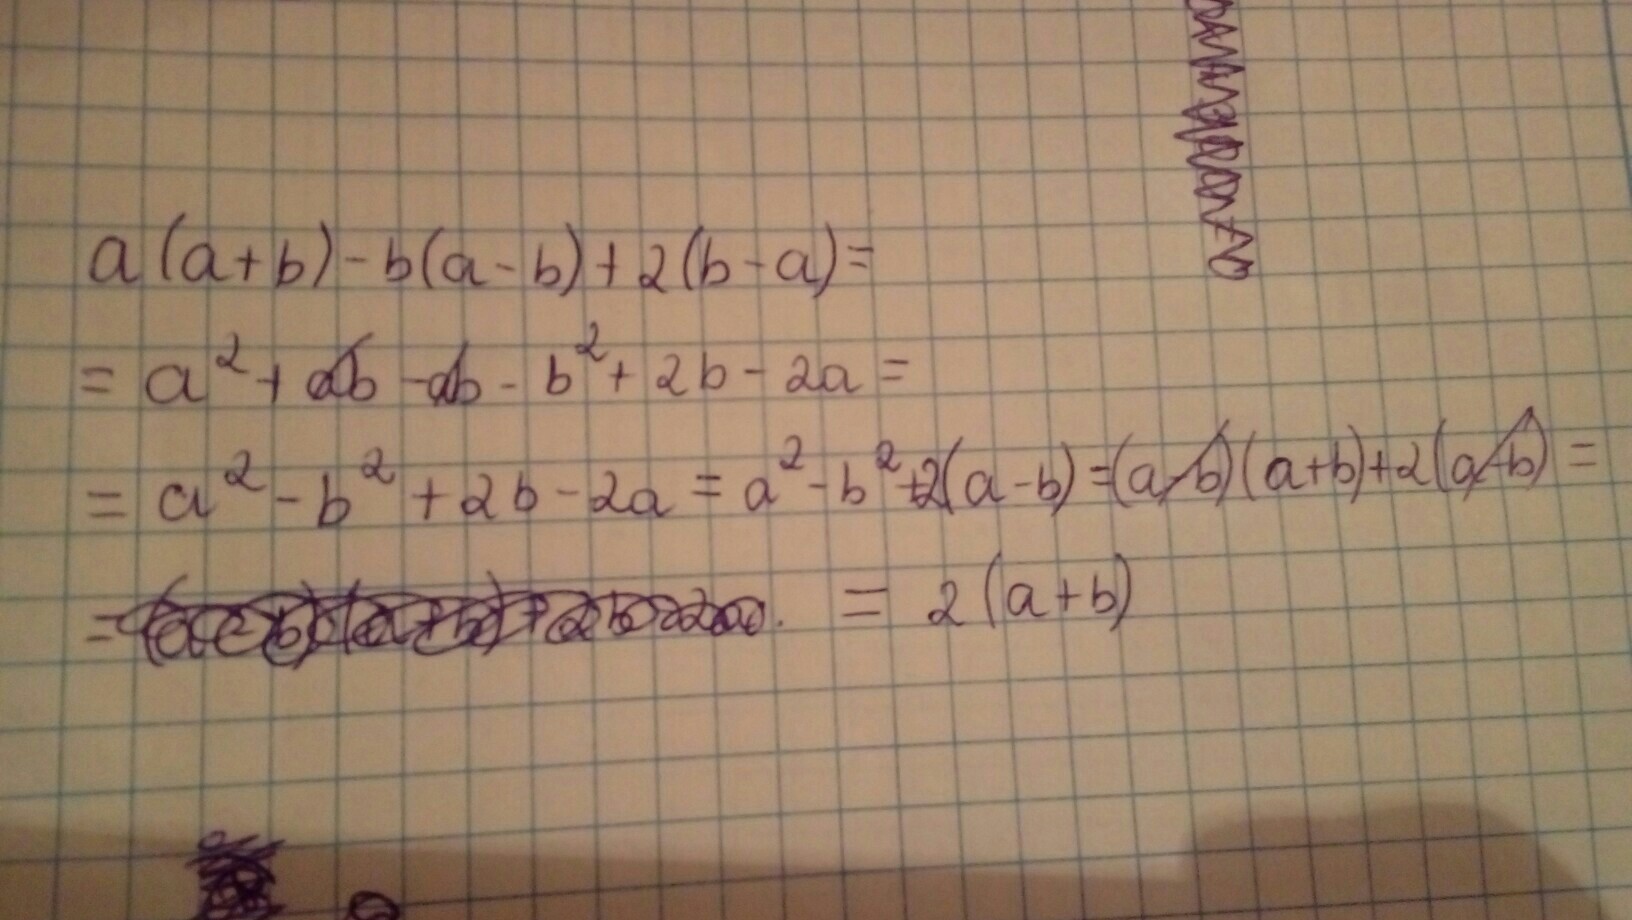 a(a+b)-b(a-b)+2(b-a)=
=a²+ab-ab-b²+2b-2a=
=a²-b²+2b-2a=a²-b²+2(a-b)=(a-b)(a+b)+2(a-b)=
= = 2(a+b)